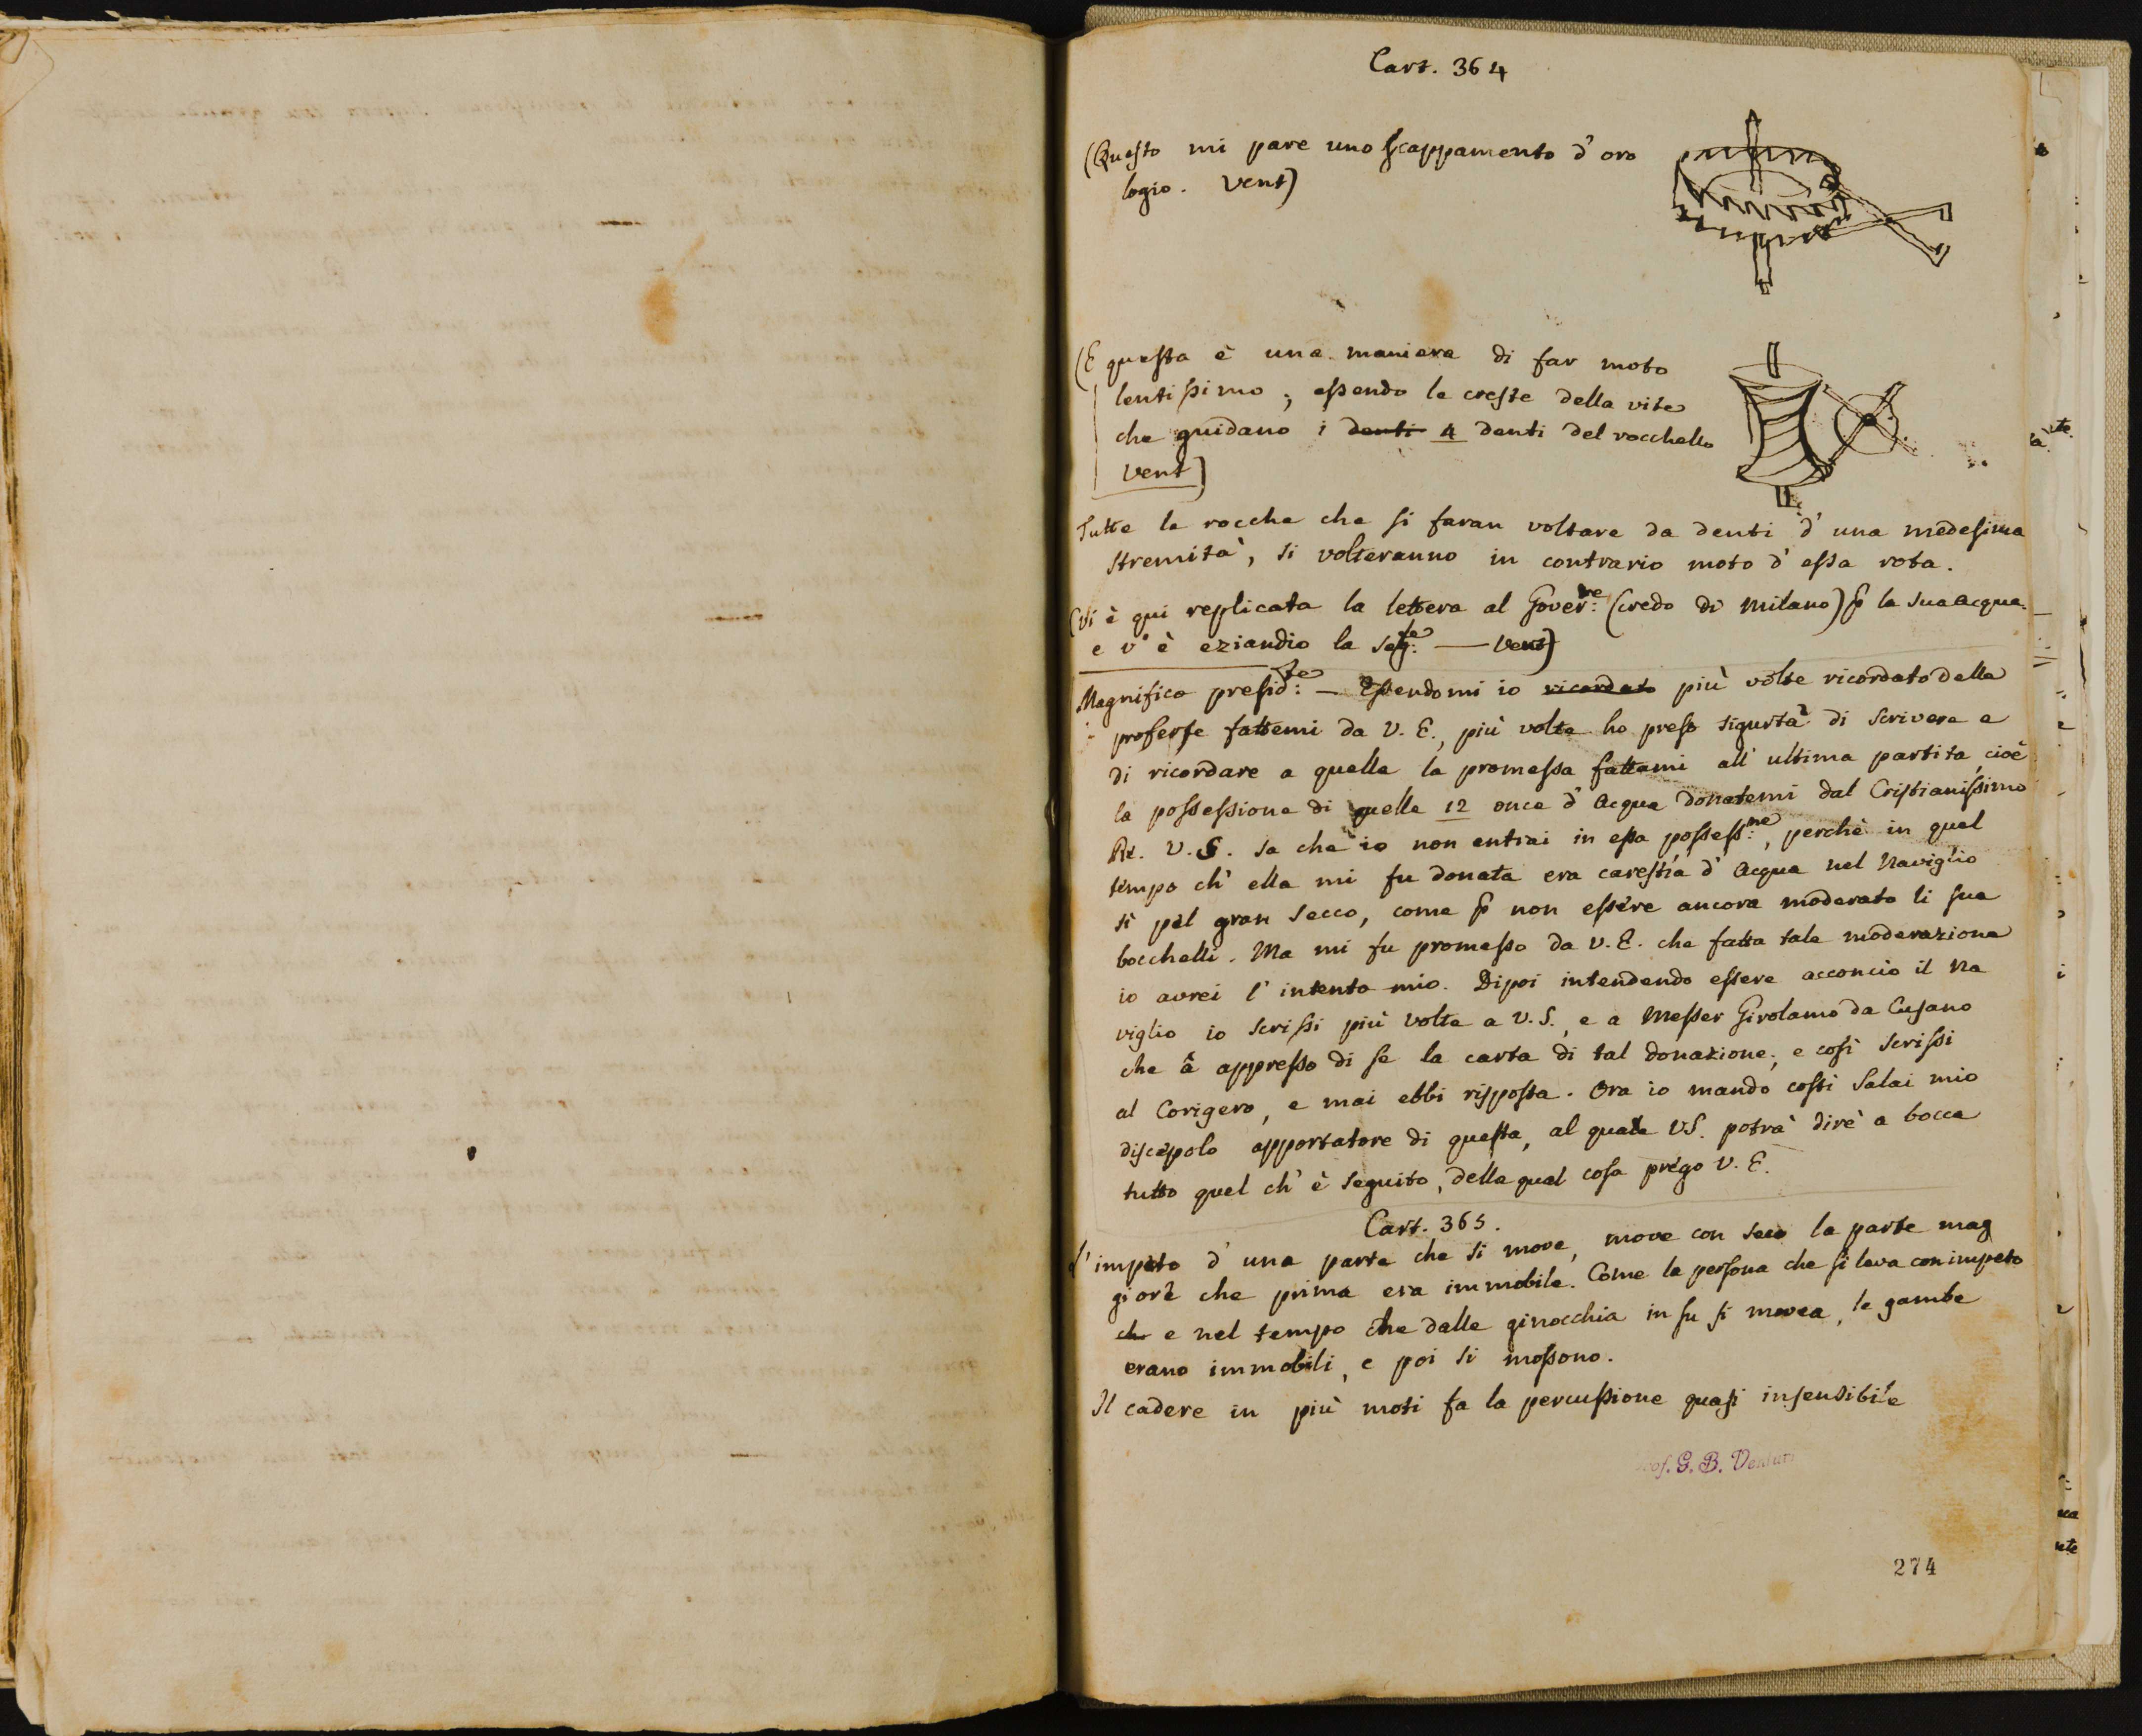 Cart. 364
(Questo mi pare uno scappamento d'oro
logio. Vent)
(E questa è una maniera di far moto
lentissimo; essendo le creste della vite
che guidano i denti 4 denti del rocchello
Vent)
Tutte le rocche che si faran voltare da denti d'una medesima
stremità, si volteranno in contrario moto d'essa rota.
(Vi è qui replicata la lettera al Gover:re (credo di Milano) p la sua acqua
e v'è eziandio la seg:te — Vent)
Magnifico presid:te — Essendomi io ricordato più volte ricordato delle
proferse fattemi da V. E., più volte ho preso sigurtà di scrivere e
di ricordare a quelle la promessa fattami all'ultima partita, cioè
la possessione di quelle 12 once d'acqua donatemi dal Cristianissimo
Re. V. S. sa che io non entrai in essa possess:ne, perchè in quel
tempo ch'ella mi fu donata era carestia d'acqua nel Naviglio
sì pel gran secco, come p non essere ancora moderato li sua
bocchelli. Ma mi fu promesso da V. E. che fatta tale moderazione
io avrei l'intento mio. Dipoi intendendo essere acconcio il Na
viglio io scrissi più volte a V. S., e a Messer Girolamo da Cusano
che â appresso di se la carta di tal donazione, e così scrissi
al Corigero, e mai ebbi risposta. Ora io mando costì Salai mio
discepolo apportatore di questa, al quale VS. potrà dire a bocca
tutto quel ch'è seguito, della qual cosa prego V. E.
Cart. 365.
L'impeto d'una parte che si move, move con seco la parte mag
giore che prima era immobile. Come la persona che si leva con impeto
che e nel tempo che dalle ginocchia in su si movea, le gambe
erano immobili, e poi si mossono.
Il cadere in più moti fa la percussione quasi insensibile
G. B. Venturi
274